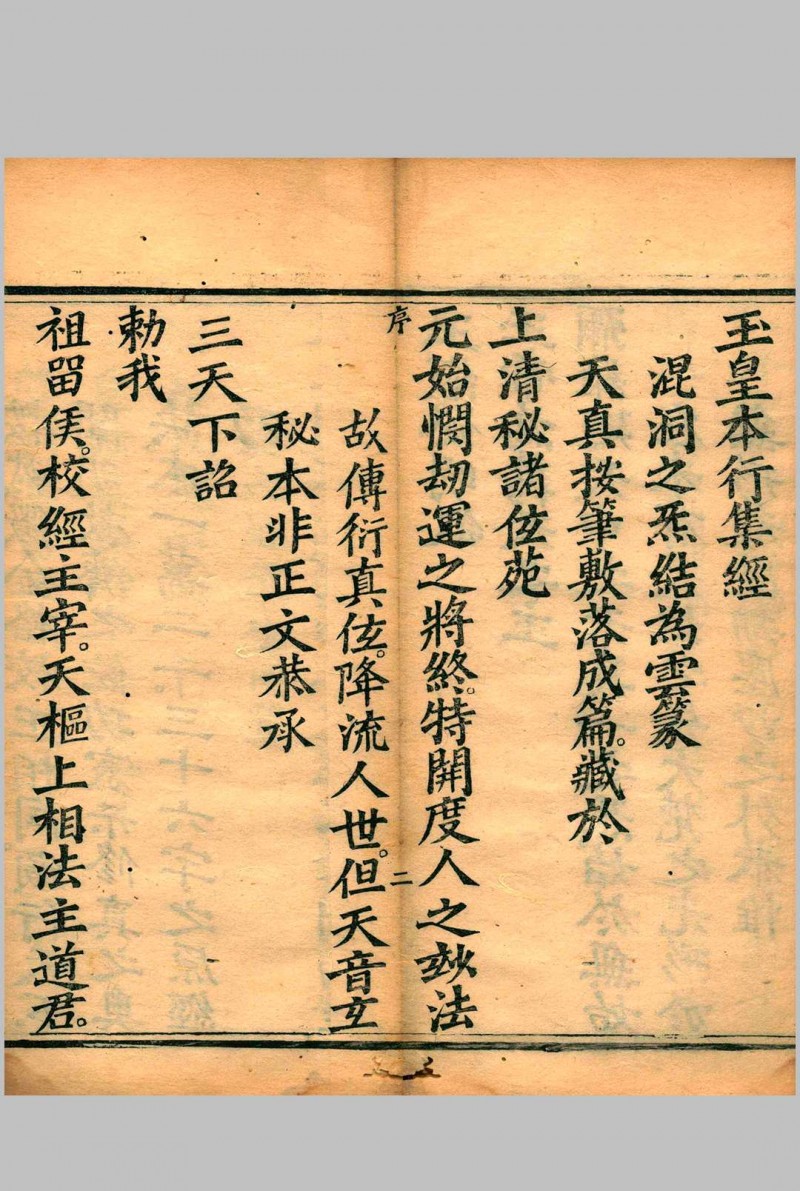 玉皇本行集經
混洞之炁結為雲篆
天真按筆敷落成篇。藏於
上清秘諸伭苑
元始憫劫運之將終。特開度人之玅法
序
二
故傳衍真伭。降流人世。但天音玄
秘本非正文恭承
三天下詔
勅我
祖留侯。校經主宰。天樞上相法主道君。